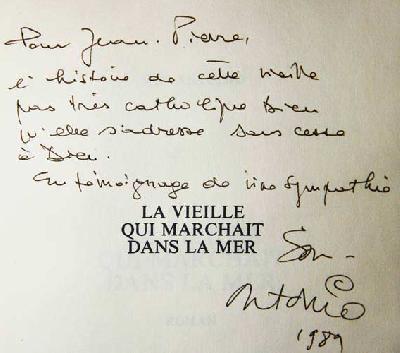 Pour Jean-Pierre,
l'histoire de cette vieille
pas très catholique bien
qu'elle s'adresse sans cesse
à Dieu.
En témoignage de vive sympathie
LA VIEILLE
QUI MARCHAIT
DANS LA MER
San-
Antonio
1989
ROMAN